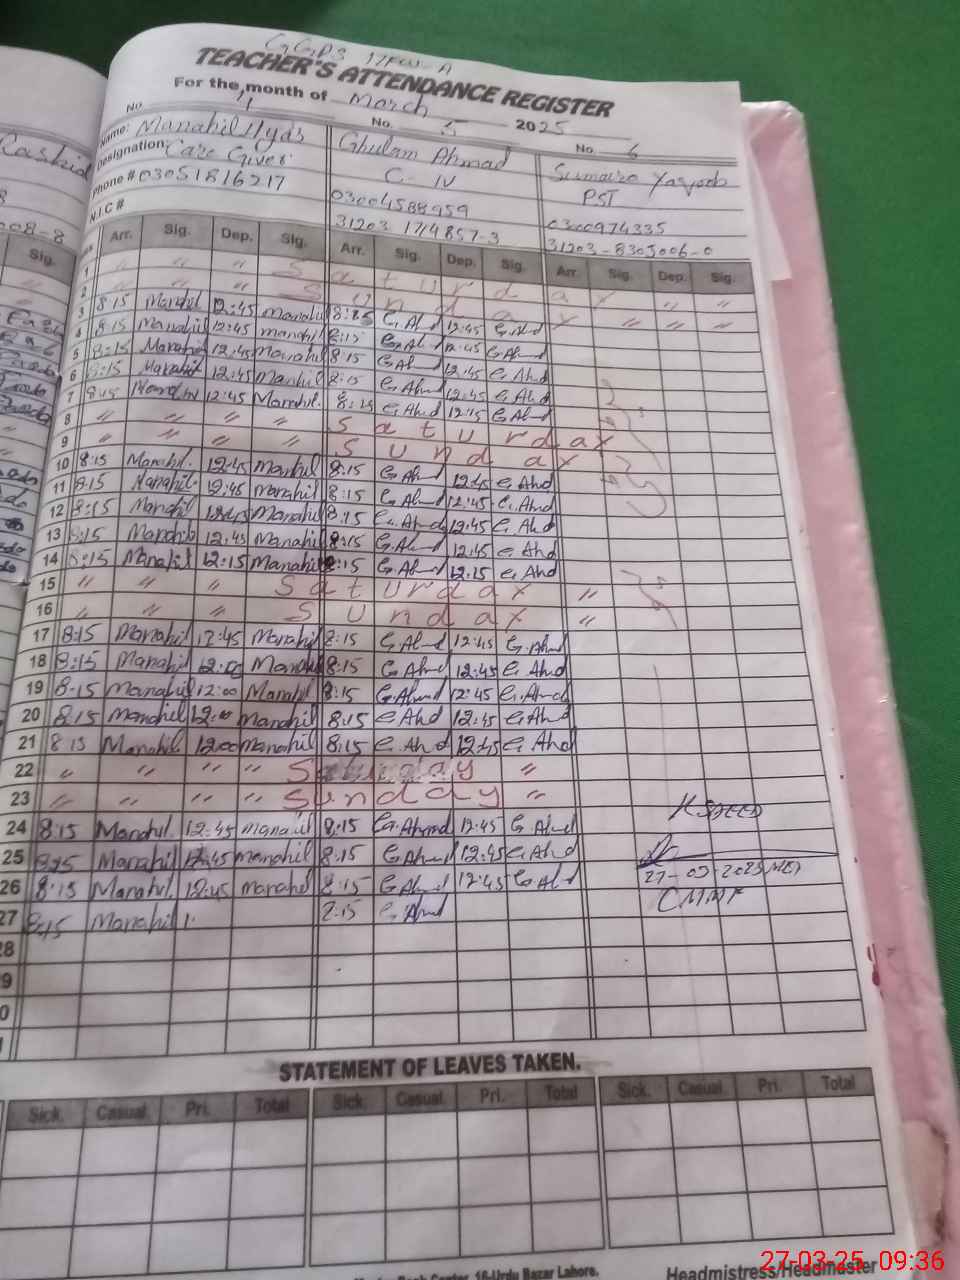 GGPS 17FW-A
TEACHER'S ATTENDANCE REGISTER
For the month of March 2025
No. 4 No. 5 No. 6
Name: Manahil Ilyas Ghulam Ahmad Sumaira Yaqoob
Designation: Care Giver C-IV PST
Phone # 03051816217 03004588959 0300974335
N.I.C # 31203 1714857-3 31203-8305006-0
Sig. Arr. Sig. Dep. Sig. Arr. Sig. Dep. Sig. Arr. Sig. Dep. Sig.
1 " " " Saturday " "
2 " " " Sunday " " " "
3 8:15 Manahil 12:45 Manahil 8:15 G.Ahd 12:45 G.Ahd
4 8:15 Manahil 12:45 Manahil 8:15 G.Ahd 12:45 G.Ahd
5 8:15 Manahil 12:45 Manahil 8:15 G.Ahd 12:45 G.Ahd
6 8:15 Manahil 12:45 Manahil 8:15 G.Ahd 12:45 G.Ahd
7 8:15 Manahil 12:45 Manahil 8:15 G.Ahd 12:15 G.Ahd
8 " " " " Saturday
9 " " " " Sunday
10 8:15 Manahil 12:45 Manahil 8:15 G.Ahd 12:45 G.Ahd
11 8:15 Manahil 12:45 Manahil 8:15 G.Ahd 12:45 G.Ahd
12 8:15 Manahil 12:45 Manahil 8:15 G.Ahd 12:45 G.Ahd
13 8:15 Manahil 12:45 Manahil 8:15 G.Ahd 12:45 G.Ahd
14 8:15 Manahil 12:15 Manahil 8:15 G.Ahd 12:15 G.Ahd
15 " " " Saturday "
16 " " " Sunday "
17 8:15 Manahil 12:45 Manahil 8:15 G.Ahd 12:45 G.Ahmd
18 8:15 Manahil 12:00 Manahil 8:15 G.Ahmd 12:45 G.Ahd
19 8:15 Manahil 12:00 Manahil 8:15 G.Ahmd 12:45 G.Ahmd
20 8:15 Manahil 12:00 Manahil 8:15 G.Ahd 12:45 G.Ahd
21 8:15 Manahil 12:00 Manahil 8:15 G.Ahd 12:45 G.Ahd
22 " " " " Saturday "
23 " " " " Sunday "
24 8:15 Manahil 12:45 Manahil 8:15 G.Ahmad 12:45 G.Ahd
25 8:15 Manahil 12:45 Manahil 8:15 G.Ahmd 12:45 G.Ahd
26 8:15 Manahil 12:45 Manahil 8:15 G.Ahmd 12:45 G.Ahd
27 8:15 Manahil 1 G.Ahmd
28
STATEMENT OF LEAVES TAKEN.
Sick. Casual. Pri. Total Sick. Casual. Pri. Total Sick. Casual. Pri. Total
16-Urdu Bazar Lahore. Headmistress/Headmaster
27-03-25 09:36